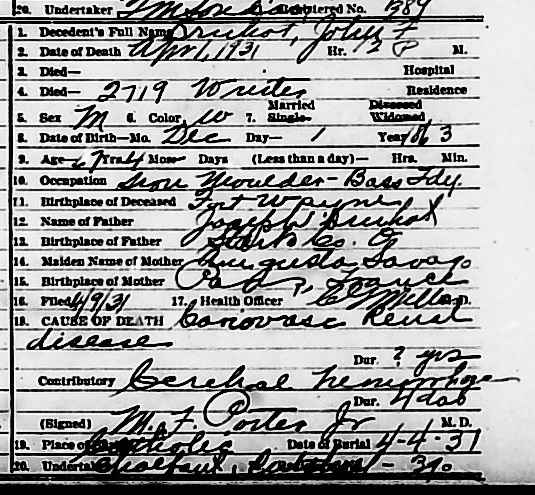 20. Undertaker Registered No. 389
1. Decedent's Full Name Bruhot, John F
2. Date of Death Apr 1, 1931 Hr. 12 P M.
3. Died— Hospital
4. Died— 2719 Writes Residence
5. Sex M 6. Color W 7. Married Single Divorced Widowed
8. Date of Birth—Mo. Dec Day— 1 Year 1863
9. Age— 67 Yrs 4 Mos Days (Less than a day)— Hrs. Min.
10. Occupation Iron Moulder - Bass Fdy.
11. Birthplace of Deceased Fort Wayne
12. Name of Father Joseph Bruhot
13. Birthplace of Father Stark Co. O
14. Maiden Name of Mother Augusta Savago
15. Birthplace of Mother France
16. Filed 4/9/31 17. Health Officer Miller M.D.
18. CAUSE OF DEATH Renal
disease
Dur. ? yrs
Contributory Cerebral hemorrhage
Dur. 4 das
(Signed) M. F. Porter Jr M. D.
19. Place of Burial Catholic Date of Burial 4-4-31
20. Undertaker Chalfant, - 390